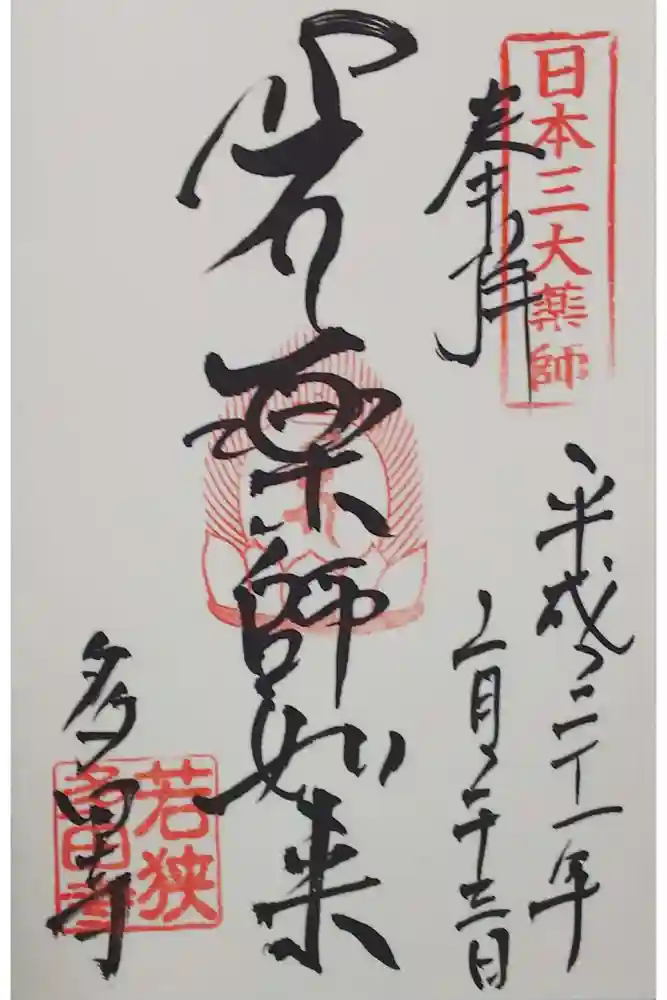 日本三大薬師
奉拝
平成三十一年
三月二十三日
岩薬師如来
多田寺
若狭
多田寺